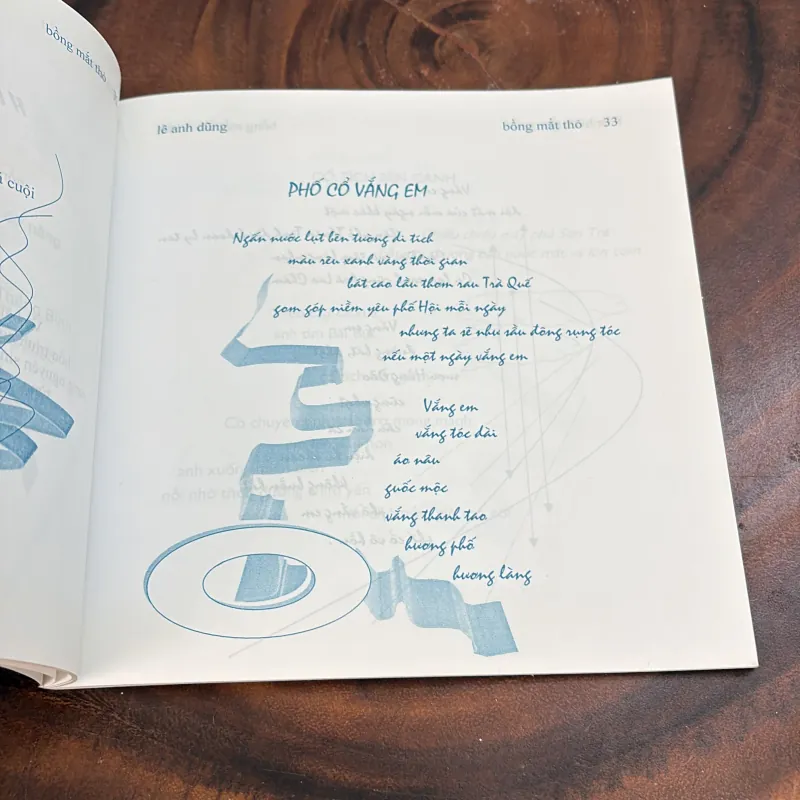 bồng mắt thõ
á cuội
lê anh dũng
bồng mắt thõ 33
PHỐ CỔ VẮNG EM
Ngấn nước lụt bên tường di tích
màu rêu xanh vàng thời gian
bát cao lầu thơm rau Trà Quế
gom góp niềm yêu phố Hội mỗi ngày
nhưng ta sẽ như sầu đông rụng tóc
nếu một ngày vắng em
Vắng em
vắng tóc dài
áo nâu
guốc mộc
vắng thanh tao
hương phố
hương làng